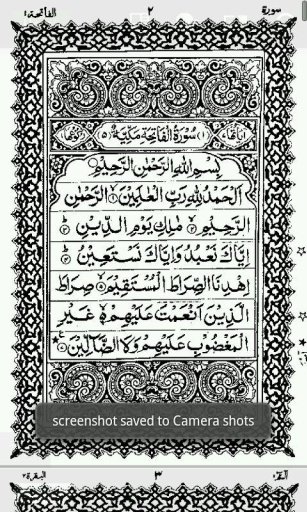 الفاتحة ١ ٢ سورة
اياتها ٧ (١) سُوْرَةُ الْفَاتِحَةِ مَكِّيَّةٌ (٥)
بِسْمِ اللهِ الرَّحْمٰنِ الرَّحِيْمِ
اَلْحَمْدُ لِلّٰهِ رَبِّ الْعٰلَمِيْنَ ۙ﴿۱﴾ الرَّحْمٰنِ
الرَّحِيْمِ ۙ﴿۲﴾ مٰلِكِ يَوْمِ الدِّيْنِ ؕ﴿۳﴾
اِيَّاكَ نَعْبُدُ وَاِيَّاكَ نَسْتَعِيْنُ ؕ﴿۴﴾
اِهْدِنَا الصِّرَاطَ الْمُسْتَقِيْمَ ۙ﴿۵﴾ صِرَاطَ
الَّذِيْنَ اَنْعَمْتَ عَلَيْهِمْ ۙ۬ۦ غَيْرِ
الْمَغْضُوْبِ عَلَيْهِمْ وَلَا الضَّآلِّيْنَ
screenshot saved to Camera shots
البقرة ٢ ٣ الٓمّٓ